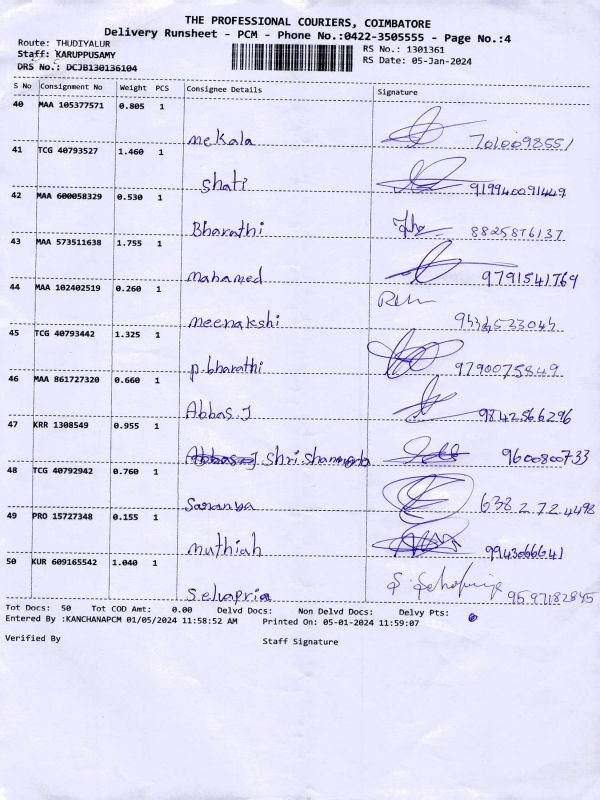 THE PROFESSIONAL COURIERS, COIMBATORE
Delivery Runsheet - PCM - Phone No.:0422-3505555 - Page No.:4
Route: THUDIYALUR RS No.: 1301361
Staff: KARUPPUSAMY RS Date: 05-Jan-2024
DRS No.: DCJB130136104
S No Consignment No Weight PCS Consignee Details Signature
40 MAA 105377571 0.805 1
mekala 7010098551
41 TCG 40793527 1.460 1
shati 919940091449
42 MAA 600058329 0.530 1
Bharathi 8825876137
43 MAA 573511638 1.755 1
mahamed 9791541769
44 MAA 102402519 0.260 1
meenakshi
45 TCG 40793442 1.325 1
p.bharathi 9790075849
46 MAA 861727320 0.660 1
Abbas.J 9842566296
47 KRR 1308549 0.955 1
Abbas.J shri.shanmuga 9600800733
48 TCG 40792942 0.760 1
Saranya 6382724498
49 PRO 15727348 0.155 1
muthiah 9943066641
50 KUR 609165542 1.040 1
selvapria 9597182845
Tot Docs: 50 Tot COD Amt: 0.00 Delvd Docs: Non Delvd Docs: Delvy Pts:
Entered By :KANCHANAPCM 01/05/2024 11:58:52 AM Printed On: 05-01-2024 11:59:07
Verified By Staff Signature